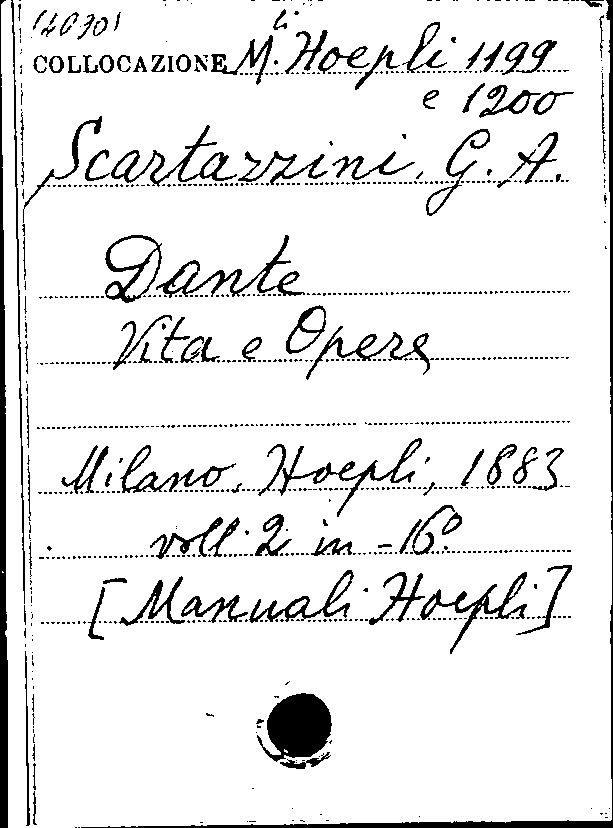 (4090)
COLLOCAZIONE M.li Hoepli 1199
e 1200
Scartazzini, G. A.
Dante
Vita e Opere
Milano, Hoepli, 1883
voll. 2 in -16º
[Manuali Hoepli]